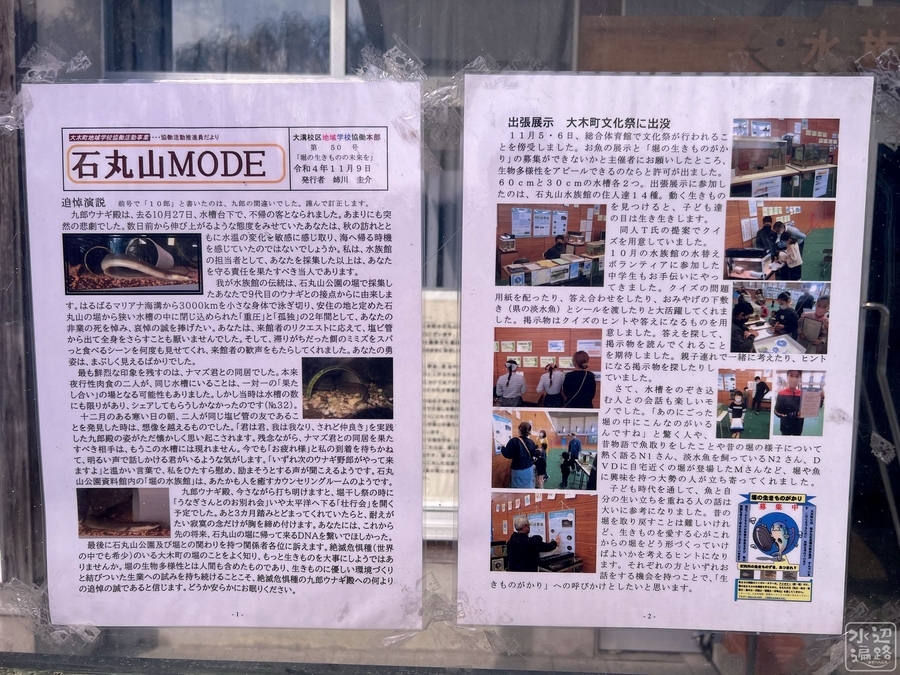 水族
大木町地域学校協働活動事業・・・協働活動推進員だより
石丸山MODE
大溝校区地域学校協働本部
第 50 号
「堀の生きものの未来を」
令和4年11月9日
発行者 姉川 圭介
追悼演説 前号で「10郎」と書いたのは、九郎の間違いでした。謹んで訂正します。
九郎ウナギ殿は、去る10月27日、水槽台下で、不帰の客となられました。あまりにも突
然の悲劇でした。数日前から伸び上がるような態度をみせていたあなたは、秋の訪れとと
もに水温の変化を敏感に感じ取り、海へ帰る時機
を感じていたのではないでしょうか。私は、水族館
の担当者として、あなたを採集した以上は、あなた
を守る責任を果たすべき当人であります。
我が水族館の伝統は、石丸山公園の堀で採集し
たあなたで9代目のウナギとの接点からに由来しま
す。はるばるマリアナ海溝から3000kmを小さな身体で泳ぎ切り、安住の地と定めた石
丸山の堀から狭い水槽の中に閉じ込められた「重圧」と「孤独」の2年間として、あなたの
非業の死を悼み、哀悼の誠を捧げたい。あなたは、来館者のリクエストに応えて、塩ビ管
から出て全身をさらすことも厭いませんでした。そして、滞りがちだった餌のミミズをスパ
っと食べるシーンを何度も見せてくれ、来館者の歓声をもたらしてくれました。あなたの勇
姿は、まぶしく見えるばかりでした。
最も鮮烈な印象を残すのは、ナマズ君との同居でした。本来
夜行性肉食の二人が、同じ水槽にいることは、一対一の「果た
し合い」の場となる可能性もありました。しかし当時は水槽の数
にも限りがあり、シェアしてもらうしかなかったのです(№32)。
十二月のある寒い日の朝、二人が同じ塩ビ管の友であるこ
とを発見した時は、想像を越えるものでした。「君は君、我は我なり、されど仲良き」を実践
した九郎殿の姿がただ懐かしく思い起こされます。残念ながら、ナマズ君との同居を果た
すべき相手は、もうこの水槽には現れません。今でも「お疲れ様」と私の到着を待ちかね
て、明るい声で話しかける君がいるような気がします。「いずれ次のウナギ野郎がやって来
ますよ」と温かい言葉で、私をひたすら慰め、励まそうとする声が聞こえるようです。石丸
山公園資料館内の「堀の水族館」は、あたかも人を癒すカウンセリングルームのようです。
九郎ウナギ殿、今なながら打ち明けますと、堀干し祭の時に
「うなぎさんとのお別れ会」いや太平洋へ下る「壮行会」を開く
予定でした。あと3カ月踏みとどまってくれていたらと、耐えが
たい寂寞の念だけが胸を締め付けます。あなたには、これから
先の将来、石丸山の堀に帰って来るDNAを繋いでほしかった。
最後に石丸山公園及び堀との関わりを持つ関係者各位に訴えます。絶滅危惧種(世界
の中でも希少)のいる大木町の堀のことをよく知り、もっと生きものを大事にしようではあ
りませんか。堀の生物多様性とは人間も含めたものであり、生きものに優しい環境づくり
と結びついた生業への試みを持ち続けることこそ、絶滅危惧種の九郎ウナギ殿への何より
の追悼の誠であると信じます。どうか安らかにお眠りください。
-1-
出張展示 大木町文化祭に出没
11月5・6日、総合体育館で文化祭が行われること
を傍受しました。お魚の展示と「堀の生きものがか
り」の募集ができないかと主催者にお願いしたところ、
生物多様性をアピールできるのならと許可が出ました。
60cmと30cmの水槽を2つ。出張展示に参加し
たのは、石丸山水族館の住人達14種。動く生きもの
を見つけると、子ども達
の目は生き生きします。
同人T氏の提案でクイ
ズを用意していました。
10月の水族館の水替え
ボランティアに参加した
中学生もお手伝いにやっ
てきました。クイズの問題
用紙を配ったり、答え合わせをしたり、おみやげの下敷
き（県の淡水魚）とシールを渡したりと大活躍してくれま
した。掲示物はクイズのヒントや答えになるものを用
意しました。答えを探して、
掲示物を読んでくれること
を期待しました。親子連れで一緒に考えたり、ヒント
になる掲示物を探したりし
ていました。
さて、水槽をのぞき込
む人との会話も楽しいモ
ノでした。「あのにごった
堀の中にこんなのがいる
んですね」と驚く人や、
昔物語で魚取りをしたことや昔の堀の様子について
熱く語るN1さん、淡水魚を飼っているN2さん、D
VDに自宅近くの堀が登場したMさんなど、堀や魚
に興味を持つ大勢の人が立ち寄ってくれました。
子ども時代を通して、魚と自
分の生い立ちを重ねる人の話は
大いに参考になりました。昔の
堀を取り戻すことは難しいけれ
ど、生きものを愛する心がこれ
からの堀をどう形づくっていけ
ばよいかを考えるヒントになり
ます。それぞれの方といずれお
話をする機会を持つことで、「生
きものがかり」への呼びかけとしたいと思います。
堀の生きものがかり
募集中
-2-
水辺
遍路